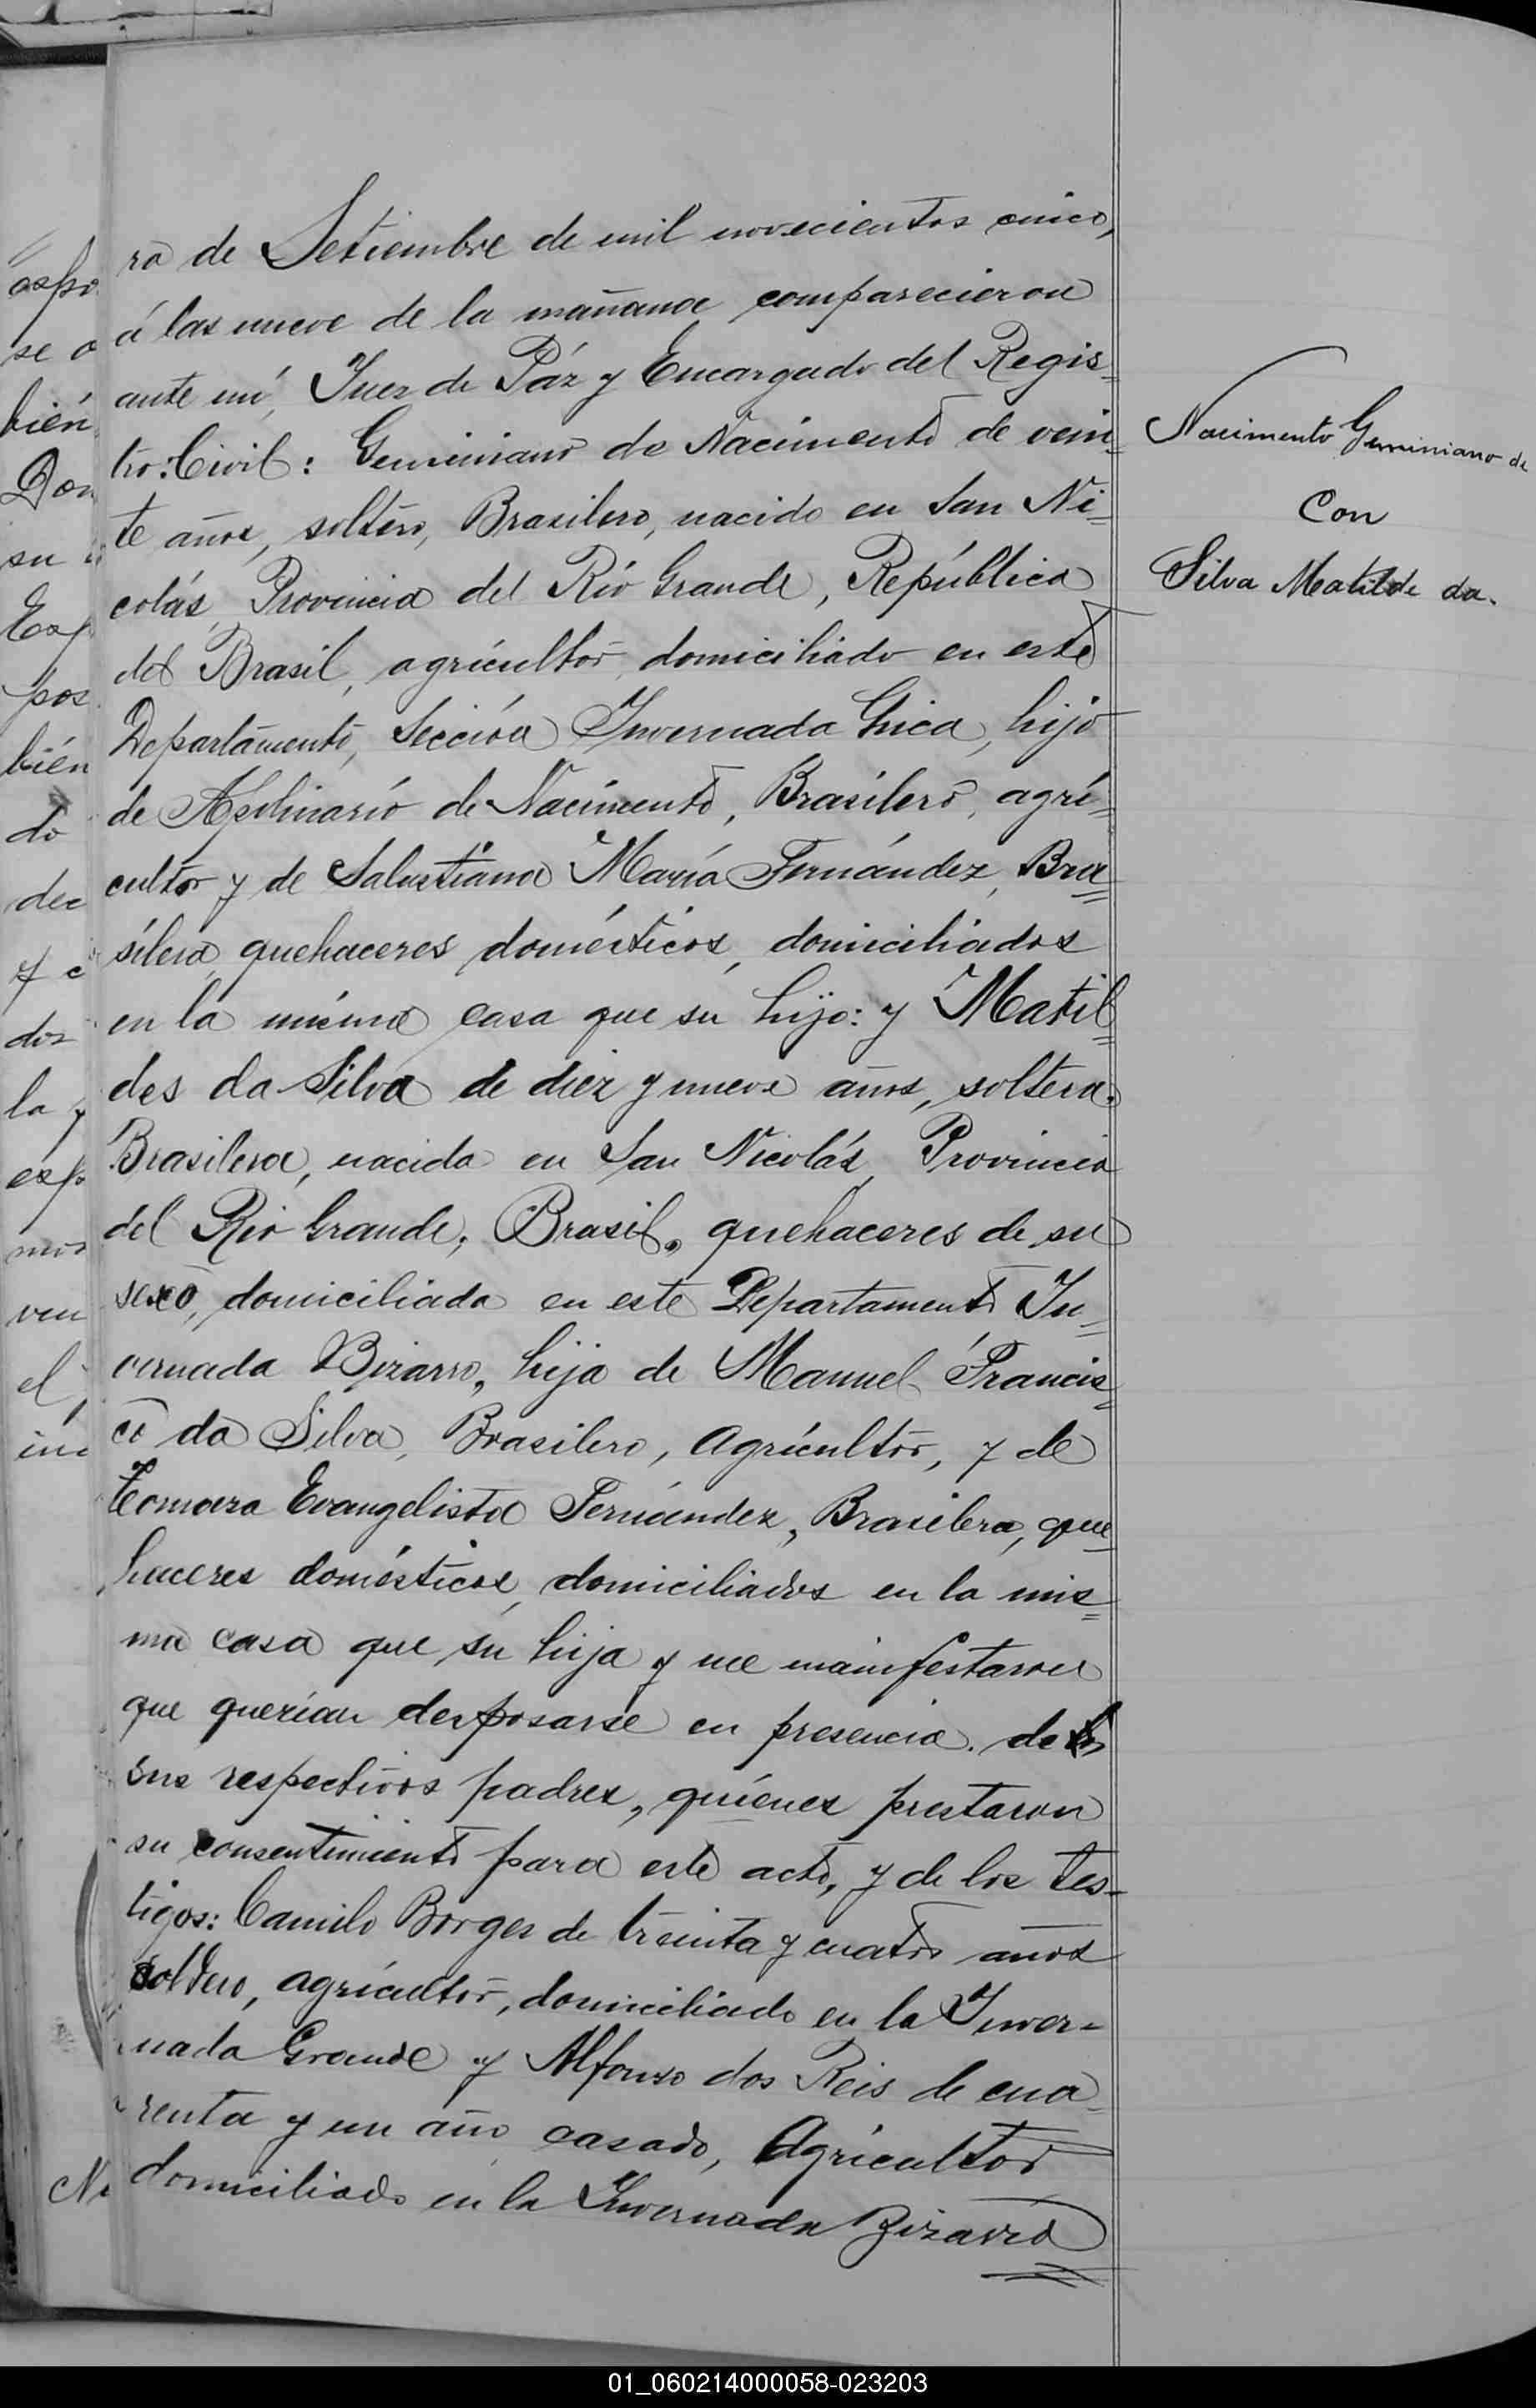 ra de Setiembre de mil novecientos cinco,
á las nueve de la mañana comparecieron
ante mí, Juez de Páz y Encargado del Regis=
tro: Civil: Geminiano de Nacimento de vein=
te años, soltero, Brasilero, nacido en San Ni=
colás, Provincia del Río Grande, República
del Brasil, agricultor, domiciliado en este
Departamento, Sección Invernada Chica, hijo
de Apolinario de Nacimento, Brasilero, agri=
cultor y de Salustiana María Fernández, Bra=
silera, quehaceres domésticos, domiciliados
en la misma casa que su hijo: y Matil=
des da Silva de diez y nueve años, soltera,
Brasilera, nacida en San Nicolás, Provincia
del Rio Grande, Brasil, quehaceres de su
sexo, domiciliada en este Departamento In=
vernada Bizarro, hija de Manuel Francis=
co da Silva, Brasilero, Agricultor, y de
Evangelista Fernández, Brasilera, que=
haceres domésticos, domiciliados en la mis=
ma casa que su hija y me manifestaron
que querían desposarse en presencia. de
sus respectivos padres, quienes prestaron
su consentimiento para este acto, y de los tes-
tigos: Camilo Borges de treinta y cuatro años
soltero, agricultor, domiciliado en la Inver-
nada Grande y Alfonso dos Reis de cua=
renta y un año casado, Agricultor
domiciliado en la Invernada Bizarro
Nacimento Geminiano de
Con
Silva Matilde da.
aspo
se
bién
Don
su
Esp
pos
bién
do
dec
y c
dos
la y
esp
mos
ven
el
inc
01_060214000058-023203